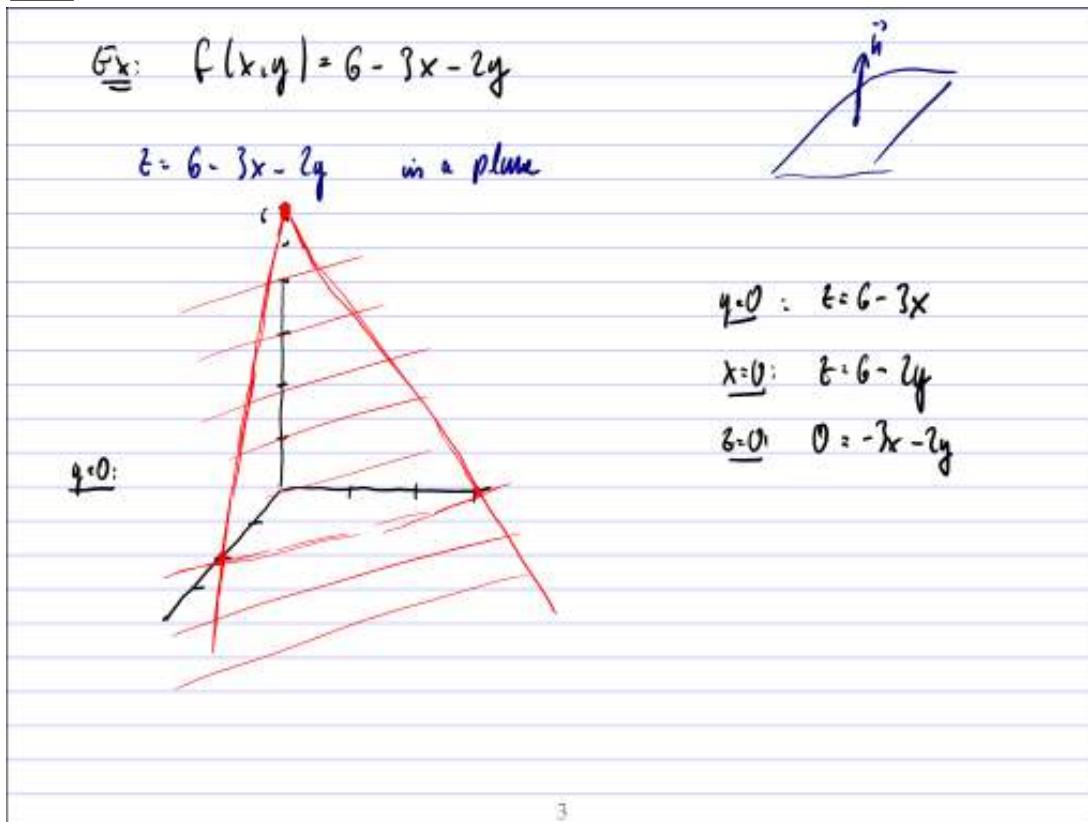 Ex: f(x,y) = 6 - 3x - 2y
n
z = 6 - 3x - 2y is a plane
6
y=0: z = 6 - 3x
x=0: z = 6 - 2y
z=0: 0 = -3x - 2y
y=0:
3